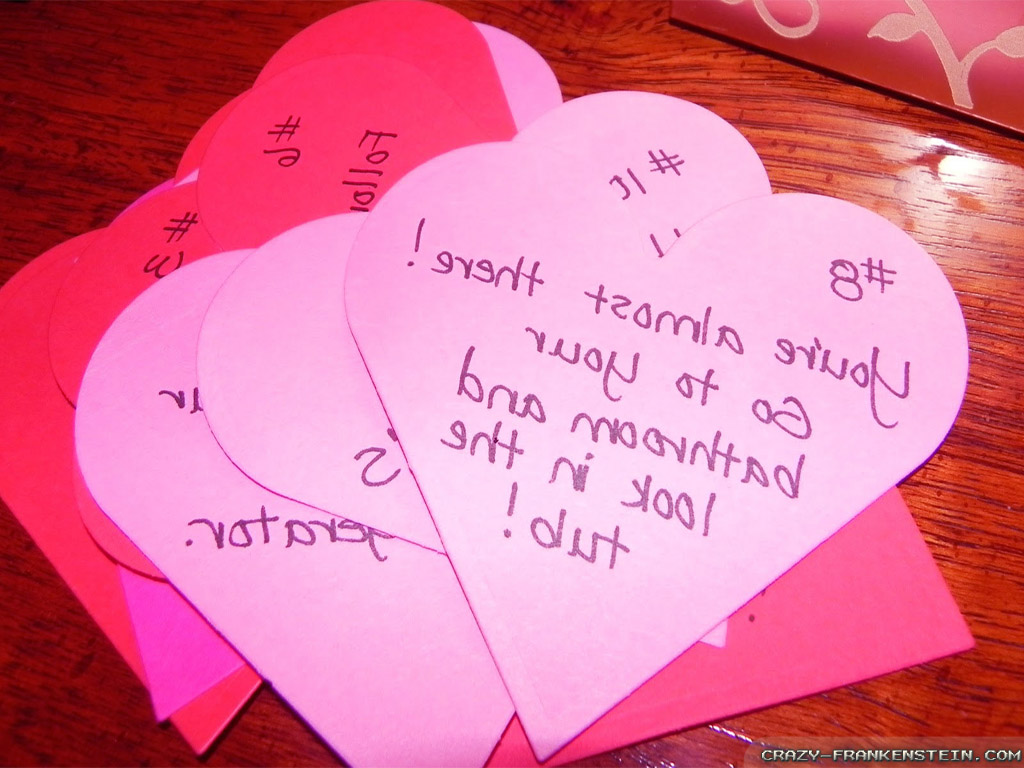 #6
Follo
#3
#8
You're almost there!
Go to your
bathroom and
look in the
tub!
ur
gerator.
CRAZY-FRANKENSTEIN.COM